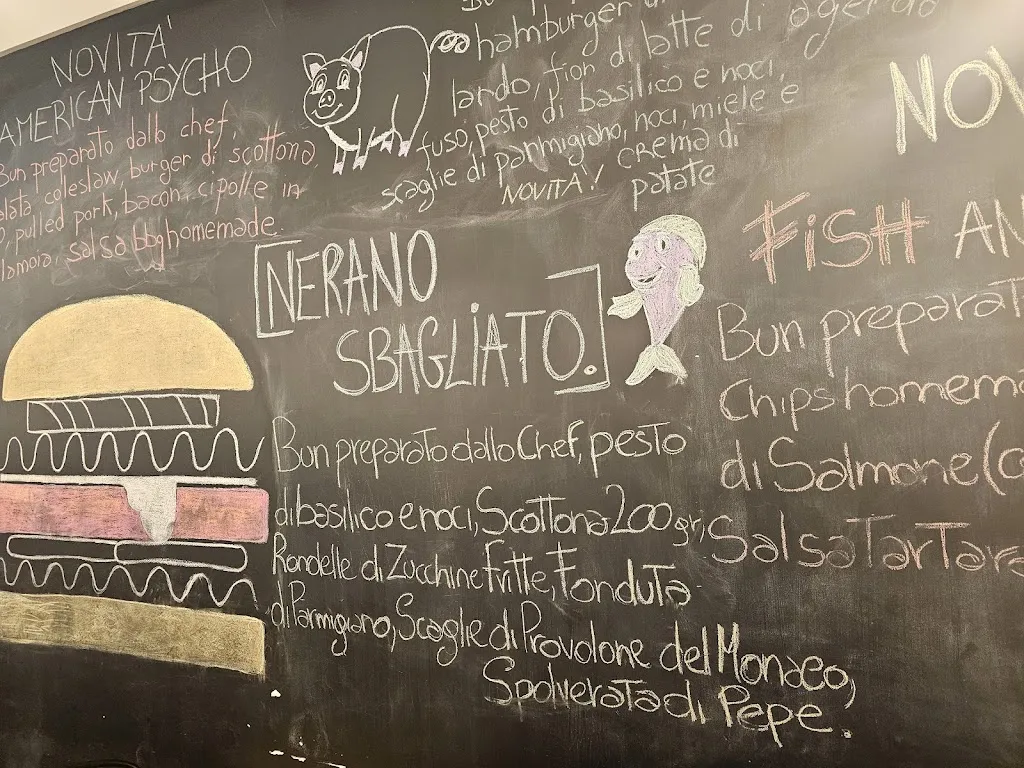 NOVITA'
AMERICAN PSYCHO
Bun preparato dallo chef,
coleslaw, burger di scottona,
pulled pork, bacon, cipolle in
salsa bbq homemade.
hamburger
lardo, fior di latte di agerola
fuso, pesto di basilico e noci,
scaglie di parmigiano, noci, miele e
NOVITA'! crema di
patate
[NERANO
SBAGLIATO.]
Bun preparato dallo Chef, pesto
di basilico e noci, Scottona 200gr,
Rondelle di Zucchine Fritte, Fonduta
di Parmigiano, Scaglie di Provolone del Monaco,
Spolverata di Pepe.
NOV
FISH AN
Bun preparat
Chips homema
di Salmone (
Salsa Tartara